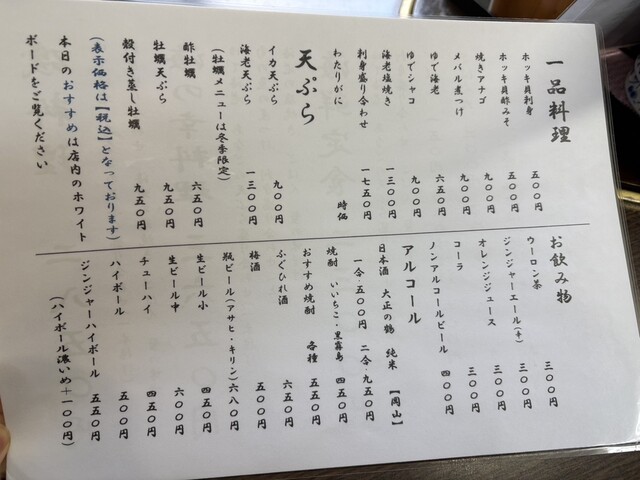 一品料理
ホッキ貝刺身 五〇〇円
ホッキ貝酢みそ 五〇〇円
焼きアナゴ 九〇〇円
メバル煮つけ 九〇〇円
ゆで海老 六五〇円
ゆでシャコ 九〇〇円
海老塩焼き 一三〇〇円
刺身盛り合わせ 一七五〇円
わたりがに 時価
天ぷら
イカ天ぷら 九〇〇円
海老天ぷら 一三〇〇円
(牡蠣メニューは冬季限定)
酢牡蠣 六五〇円
牡蠣天ぷら 九五〇円
殻付き蒸し牡蠣 九五〇円
(表示価格は【税込】となっております)
本日のおすすめは店内のホワイト
ボードをご覧ください
お飲み物
ウーロン茶 三〇〇円
ジンジャーエール(辛) 三〇〇円
オレンジジュース 三〇〇円
コーラ 三〇〇円
ノンアルコールビール 四〇〇円
アルコール
日本酒 大正の鶴 純米 【岡山】
一合五〇〇円 二合・九五〇円
焼酎 いいちこ・黒霧島 四五〇円
おすすめ焼酎 各種 五五〇円
ふぐひれ酒 六五〇円
梅酒 五〇〇円
瓶ビール(アサヒ・キリン)六八〇円
生ビール小 四五〇円
生ビール中 六〇〇円
チューハイ 四五〇円
ハイボール 五〇〇円
ジンジャーハイボール 五五〇円
(ハイボール濃いめ+一〇〇円)